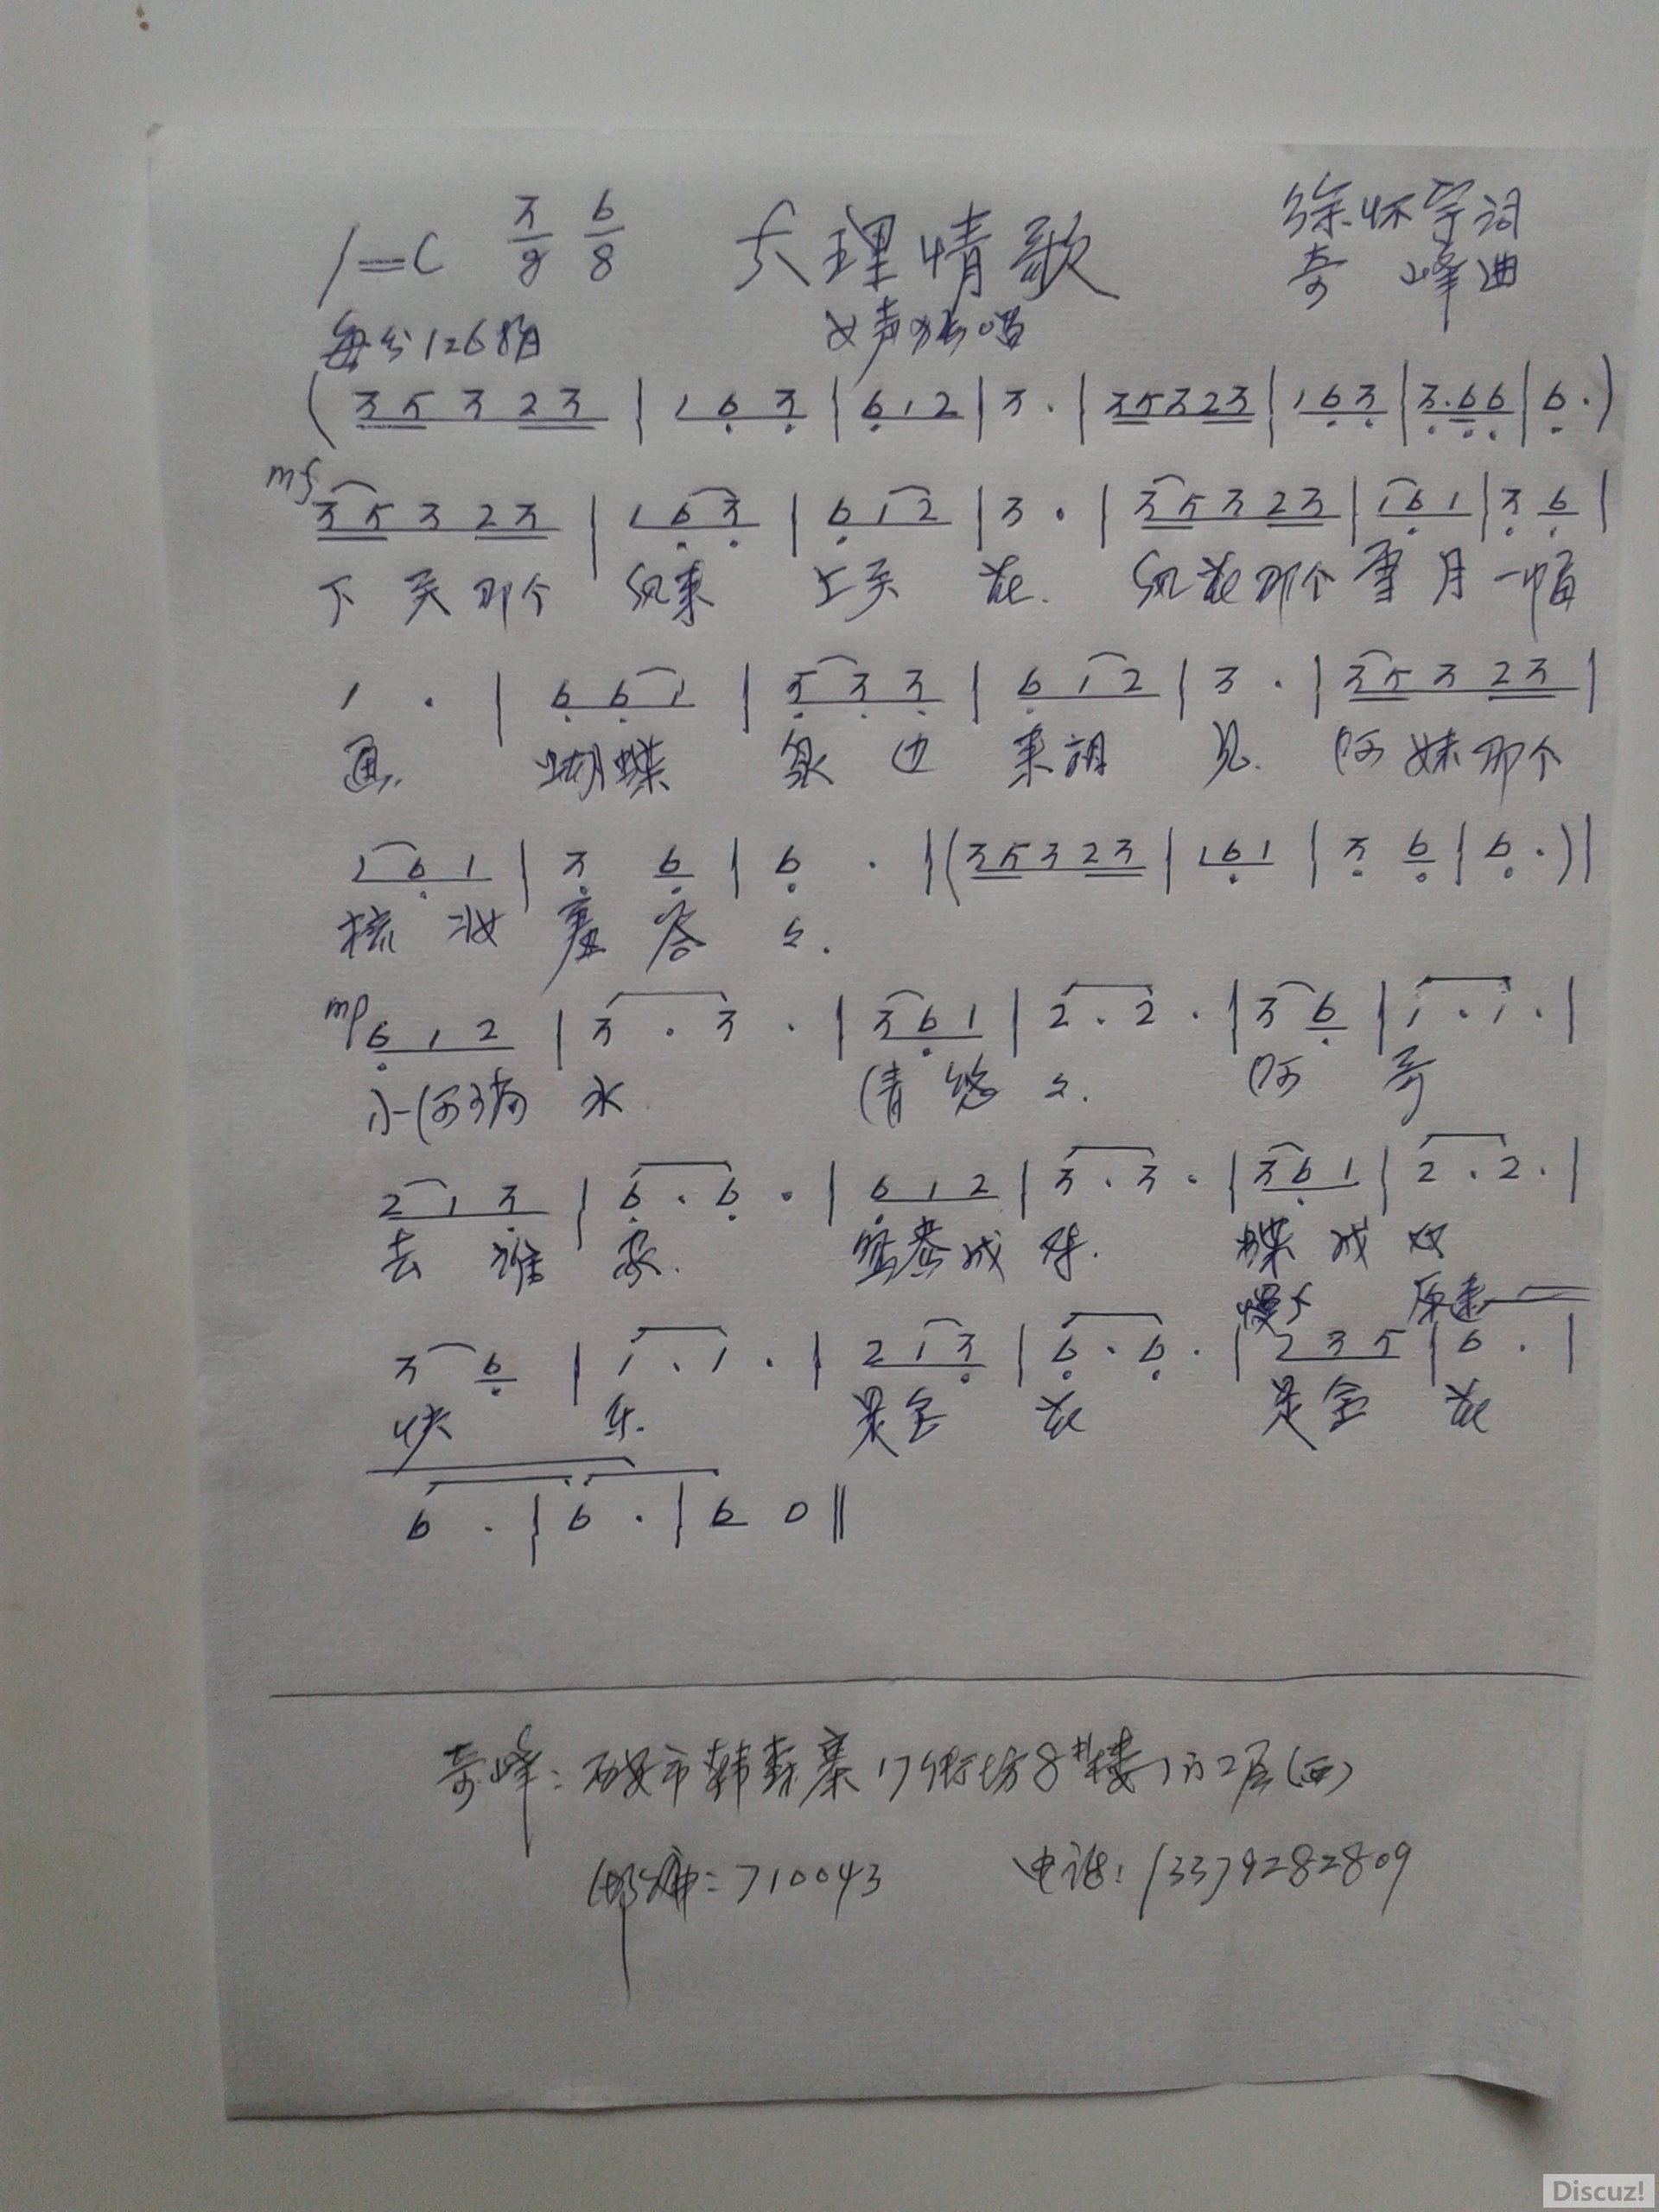 1=C 3/8 6/8 大理情歌 徐怀宇词
每分126拍 女声独唱 奇峰曲
( 3 5 3 2 3 | 1 6 3 | 6 1 2 | 3 · | 3 5 3 2 3 | 1 6 3 | 3 · 6 6 | 6 · )
mf 3 5 3 2 3 | 1 6 3 | 6 1 2 | 3 · | 3 5 3 2 3 | 1 6 1 | 3 6 |
下关那个 风来 上关 花. 风花那个雪月一幅
1 · | 6 6 1 | 5 3 3 | 6 1 2 | 3 · | 3 5 3 2 3 |
画. 蝴蝶 泉边 来相 见. 阿妹那个
1 6 1 | 3 6 | 6 · | ( 3 5 3 2 3 | 1 6 1 | 3 6 | 6 · ) |
梳妆 羞答 々.
mp 6 1 2 | 3 · 3 · | 3 6 1 | 2 · 2 · | 3 6 | 1 · 1 · |
小河淌 水 清悠 々. 阿 哥
2 1 3 | 6 · 6 · | 6 1 2 | 3 · 3 · | 3 6 1 | 2 · 2 · |
去谁 家. 成 蝶成 双
慢 原速
3 6 | 1 · 1 · | 2 1 3 | 6 · 6 · | 2 3 5 | 6 · |
快 乐. 是金 花 是金 花
6 · | 6 · | 6 0 ‖
奇峰: 西安市韩森寨17街坊8#楼1门2层(西)
邮编: 710043 电话: 13379282809
Discuz!